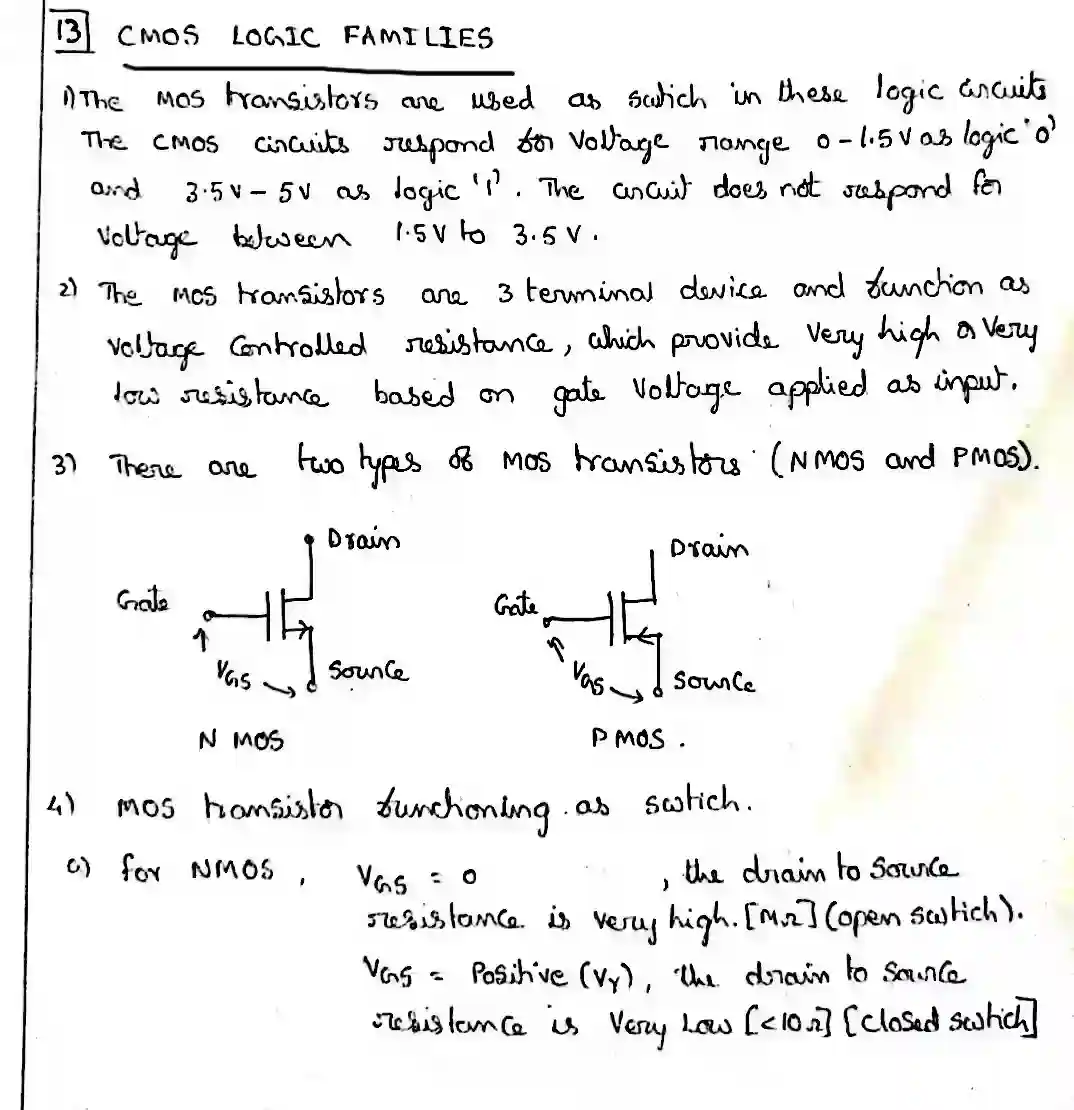 13 CMOS LOGIC FAMILIES
1) The MOS transistors are used as switch in these logic circuits
The CMOS circuits respond for voltage range 0-1.5V as logic '0'
and 3.5V-5V as logic '1'. The circuit does not respond for
voltage between 1.5V to 3.5V.
2) The MOS transistors are 3 terminal device and function as
voltage controlled resistance, which provide very high or very
low resistance based on gate voltage applied as input.
3) There are two types of MOS transistors (NMOS and PMOS).
Drain Drain
Gate Gate
VGS Source VGS Source
N MOS PMOS.
4) MOS transistor functioning as switch.
a) for NMOS, VGS = 0 , the drain to source
resistance is very high. [MΩ] (open switch).
VGS = Positive (VY), the drain to source
resistance is very Low [<10Ω] [closed switch]